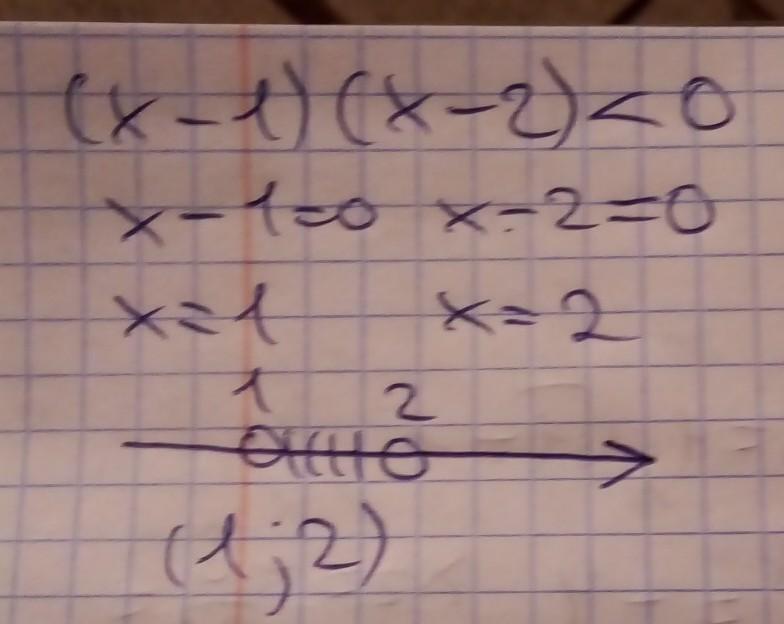 (x-1)(x-2)<0
x-1=0 x-2=0
x=1 x=2
1 2
(1;2)